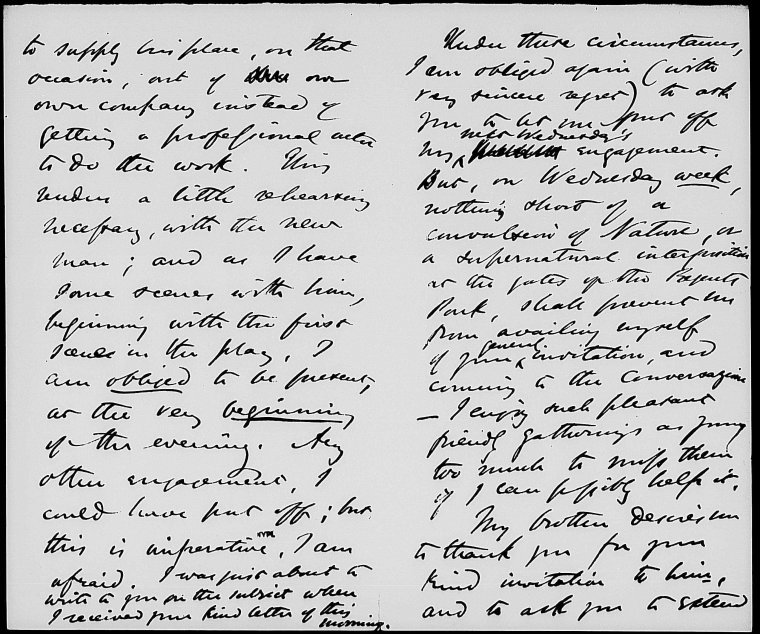 to supply his place, on that
occasion, out of our
own company instead of
getting a professional actor
to do the work. This
renders a little rehearsing
necessary, with the new
man; and as I have
some scenes with him,
beginning with the first
scene in the play, I
am obliged to be present,
at the very beginning
of the evening. Any
other engagement, I
could have put off; but
this is imperative, I am
afraid. I was just about to
write to you on the subject when
I received your kind letter of this
morning.
Under these circumstances,
I am obliged again (with
very sincere regret) to ask
you to let me put off
my next Wednesday's engagement.
But, on Wednesday week,
nothing short of a
convulsion of Nature, or
a supernatural interposition
at the gates of the Regents
Park, shall prevent me
from availing myself
of your general invitation, and
coming to the Conversazione
— I enjoy such pleasant
friendly gatherings as yours
too much to miss them
if I can possibly help it.
My brother desires me
to thank you for your
kind invitation to him,
and to ask you to extend